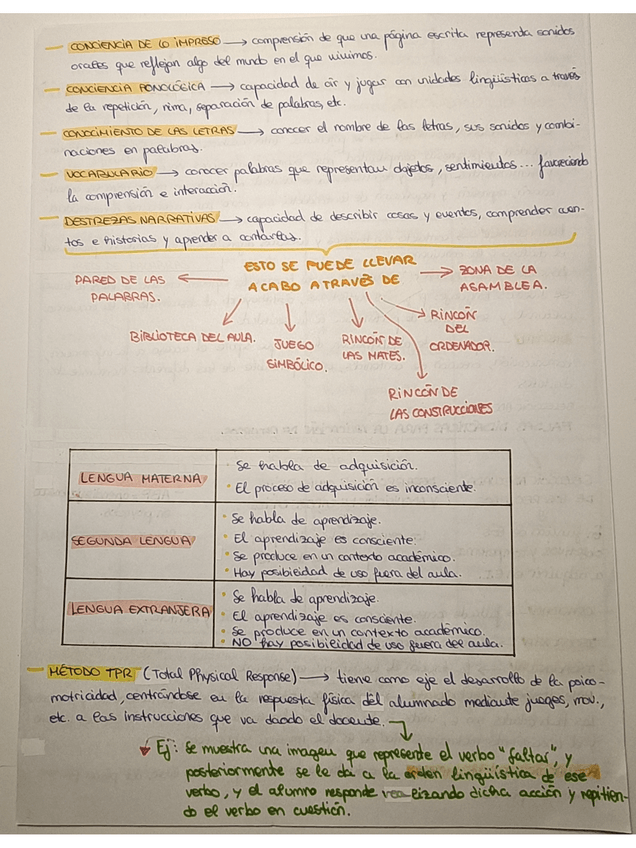 — CONCIENCIA DE LO IMPRESO → comprensión de que una página escrita representa sonidos
orales que reflejan algo del mundo en el que vivimos.
— CONCIENCIA FONOLÓGICA → capacidad de oír y jugar con unidades lingüísticas a través
de la repetición, rima, separación de palabras, etc.
— CONOCIMIENTO DE LAS LETRAS → conocer el nombre de las letras, sus sonidos y combi-
naciones en palabras.
— VOCABULARIO → conocer palabras que representan objetos, sentimientos... favoreciendo
la comprensión e interacción.
— DESTREZAS NARRATIVAS → capacidad de describir cosas y eventos, comprender cuen-
tos e historias y aprender a contarlas.
ESTO SE PUEDE LLEVAR
A CABO A TRAVÉS DE
PARED DE LAS
PALABRAS.
ZONA DE LA
ASAMBLEA.
BIBLIOTECA DEL AULA.
JUEGO
SIMBÓLICO.
RINCÓN DE
LAS MATES.
RINCÓN
DEL
ORDENADOR.
RINCÓN DE
LAS CONSTRUCCIONES
LENGUA MATERNA
· Se habla de adquisición.
· El proceso de adquisición es inconsciente.
SEGUNDA LENGUA
· Se habla de aprendizaje.
· El aprendizaje es consciente.
· Se produce en un contexto académico.
· Hay posibilidad de uso fuera del aula.
LENGUA EXTRANJERA
· Se habla de aprendizaje.
· El aprendizaje es consciente.
· Se produce en un contexto académico.
· NO hay posibilidad de uso fuera del aula.
— MÉTODO TPR (Total Physical Response) → tiene como eje el desarrollo de la psico-
motricidad, centrándose en la respuesta física del alumnado mediante juegos, mov.,
etc. a las instrucciones que va dando el docente.
Ej: Se muestra una imagen que represente el verbo "saltar", y
posteriormente se le da a la orden lingüística de ese
verbo, y el alumno responde realizando dicha acción y repitien-
do el verbo en cuestión.